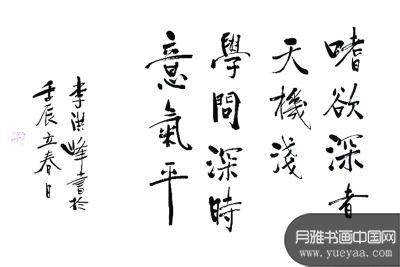 嗜欲深者
天機淺
學問深時
意氣平
李洪峰書於
壬辰立春日
月雅书画中国网
www.yueyaa.com